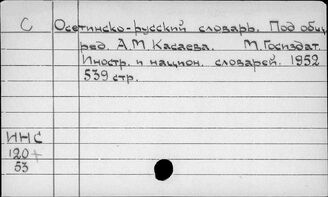 С Осетинско-русский словарь. Под общ.
ред. А.М. Касаева. М. Госиздат.
Иностр. и национ. словарей. 1952
539 стр.
ИНС
120+
53